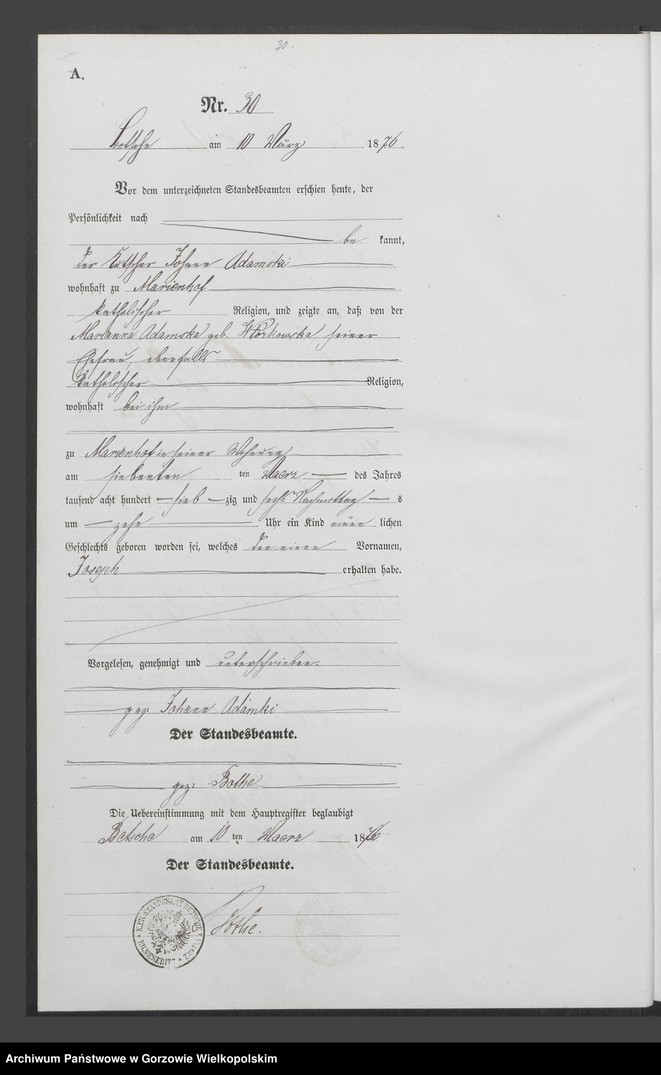 30.
A.
Nr. 30
Betsche am 10 März 1876.
Vor dem unterzeichneten Standesbeamten erschien heute, der
Persönlichkeit nach
be kannt,
der Kutscher Johann Adamski
wohnhaft zu Marienhof
katholischer Religion, und zeigte an, daß von der
Marianna Adamska geb. seiner
Ehefrau, ebenfalls
katholischer Religion,
wohnhaft bei ihm
zu Marienhof in seiner Wohnung
am siebenten ten Maerz des Jahres
tausend acht hundert sieb zig und sechs Nachmittag s
um zehn Uhr ein Kind männ lichen
Geschlechts geboren worden sei, welches den einen Vornamen,
Joseph erhalten habe.
Vorgelesen, genehmigt und unterschrieben.
gez. Johann Adamski
Der Standesbeamte.
gez: Bothe
Die Uebereinstimmung mit dem Hauptregister beglaubigt
Betsche am 10 ten Maerz 1876
Der Standesbeamte.
Bothe.
Archiwum Państwowe w Gorzowie Wielkopolskim